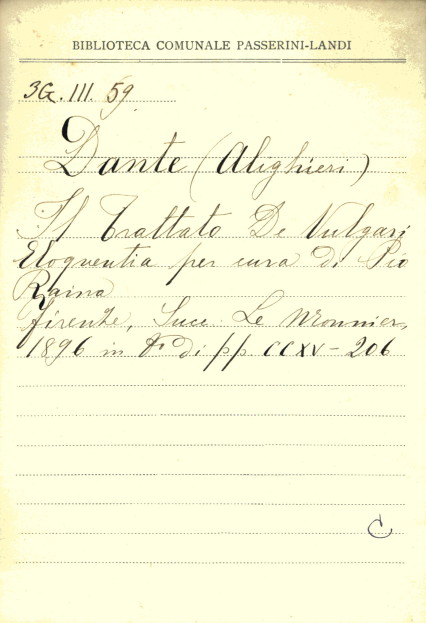 BIBLIOTECA COMUNALE PASSERINI-LANDI
3G.III.59
Dante (Alighieri)
Il Trattato De Vulgari
Eloquentia per cura di Pio
Rajna
Firenze, Succ Le Monnier,
1896 in di pp CCXV - 206
C